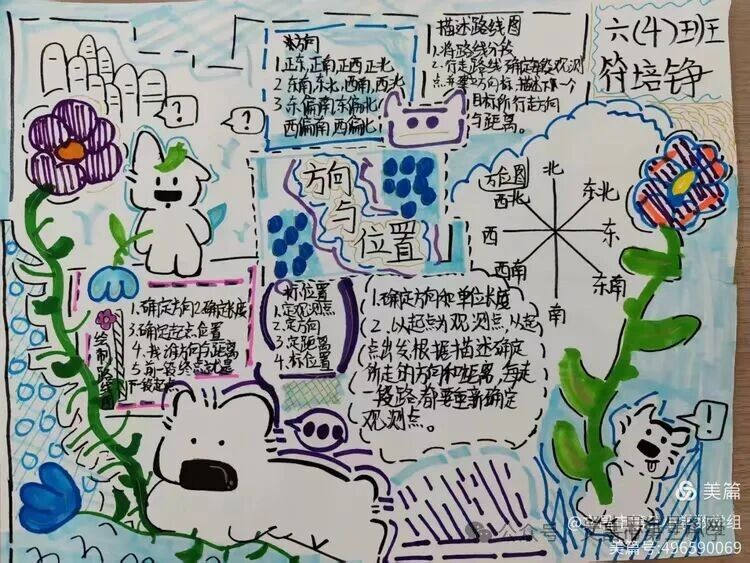 方向
1.正东,正南,正西,正北
2.东南,东北,西南,西北
3.东偏南,东偏北
西偏南,西偏北
描述路线图
1.将路线分段
目标所行走方向
与距离。
六(4)班
符培铮
?
?
方向
与
位置
方位图
北
西北
东北
西
东
西南
东南
南
1.确定方向2.确定长度
3.确定起点位置
4.找准方向与距离
5.前一段终点就是
下一段起点
绘制路线图
标位置
1.定观测点
2.定方向
3.定距离
4.标位置
1.确定方向和单位长度
2.以起点为观测点,从起
点出发,根据描述确定
所走的方向和距离,每走
一段路都要重新确定
观测点。
!
美篇
公众号
美篇号:496590069